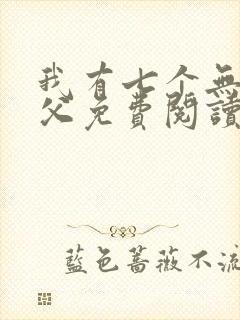 我有七个無
父免費閱讀
藍色薔薇不流